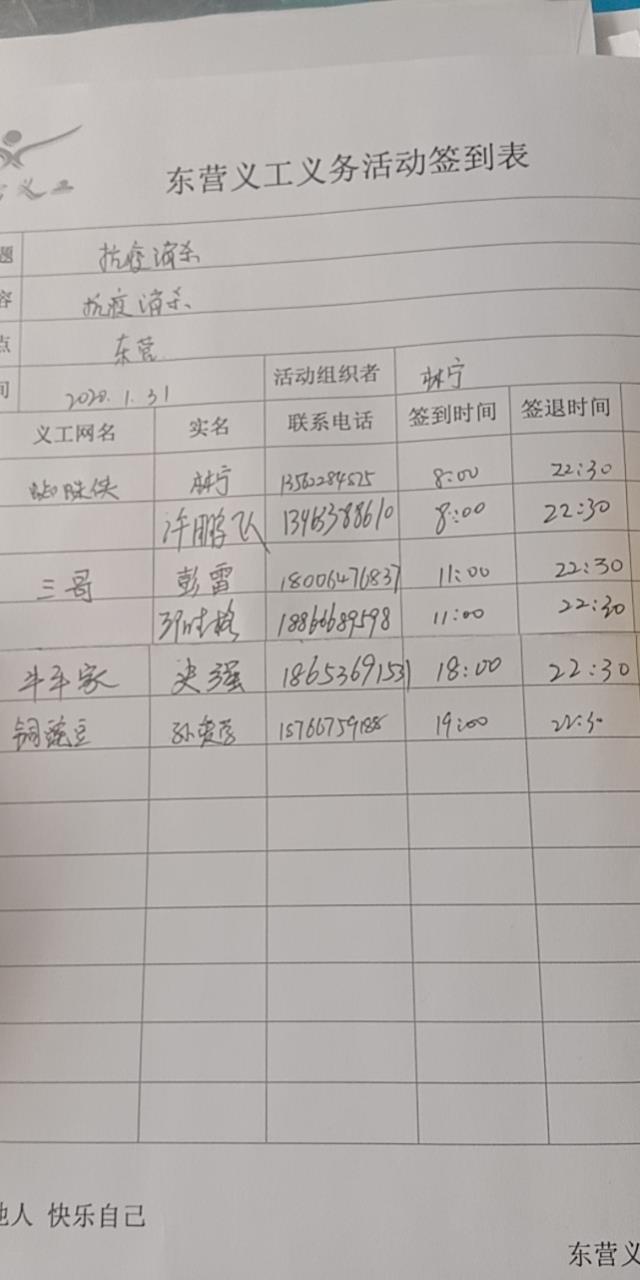 东营义工义务活动签到表
义工
题 抗疫消杀
容 抗疫消杀
点 东营
间 2020.1.31 活动组织者 林宁
义工网名 实名 联系电话 签到时间 签退时间
林宁 13562284525 8:00 22:30
许鹏飞 13963388610 8:00 22:30
三哥 彭雷 18006476837 11:00 22:30
18866689598 11:00 22:30
斗车家 史强 18653691531 18:00 22:30
铜豌豆 孙爱 15766759188 19:00 22:30
他人 快乐自己
东营义